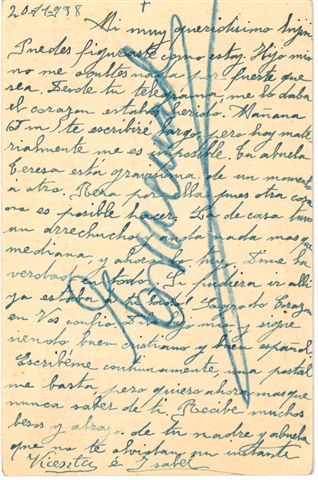 20-1-938 +
Mi muy queridísimo hijin
Puedes figurarte como estoy. Hijo mio
no me ocultes nada por fuerte que
sea. Desde tu telegrama, me lo daba
el corazon estabas herido. Mañana
(D. m.) te escribiré largo, pero hoy mate
rialmente me es imposible. Tu abuela
Teresa está gravisima de un momento
a otro. Reza por ella pues otra cosa
no es posible hacer. La de casa tuvo
un arrechucho y anda nada mas que
mediana, y ahora lo hoy. Dime la
verdad en todo. Si pudiera ir alli
ya estaba a tu lado! Sagrado Corazon
en Vos confio. Hijo mio y sigue
siendo buen cristiano y buen español.
Escribéme continuamente, una postal
me basta, pero quiero ahora mas que
nunca saber de ti. Recibe muchos
besos y abrazos de tu madre y abuela
que no te olvidan un instante
Vicenta é Isabel